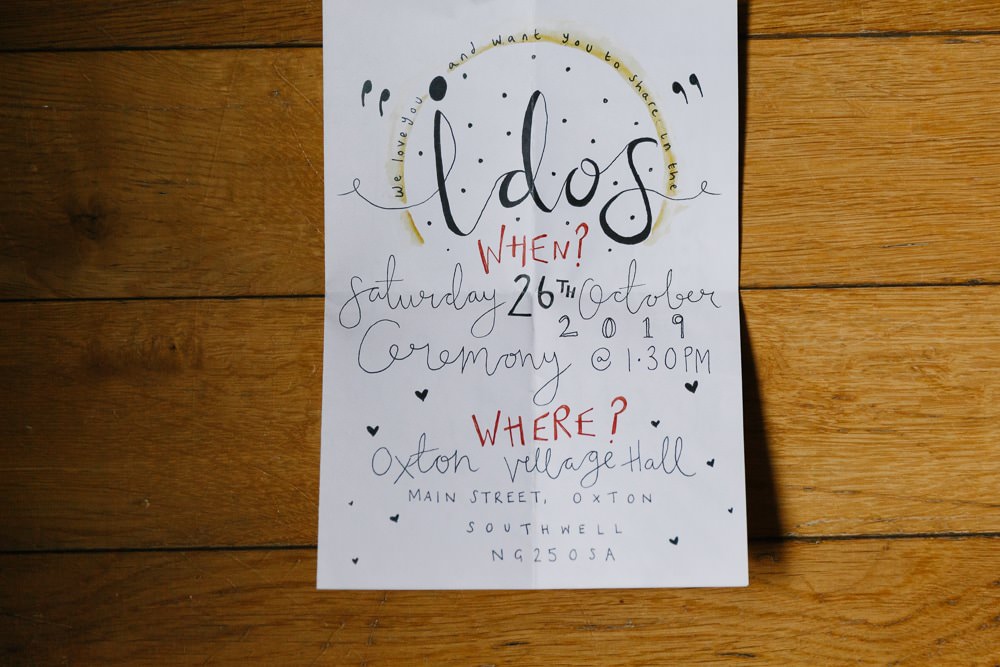 We love you and want you to share in the
"idos"
WHEN?
Saturday 26TH October
2019
Ceremony @ 1.30PM
WHERE?
Oxton Village Hall
MAIN STREET, OXTON
SOUTHWELL
NG25 0SA